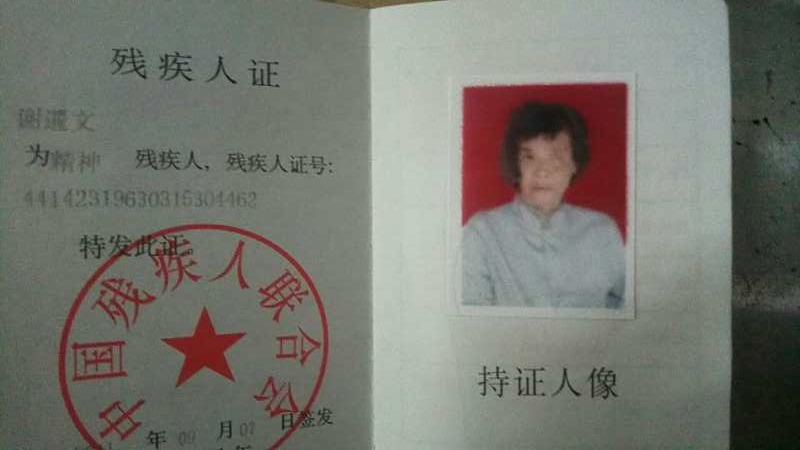 残疾人证
谢暹文
为精神 残疾人，残疾人证号：
44142319630315304462
特发此证。
中国残疾人联合会
年09月07日签发
持证人像